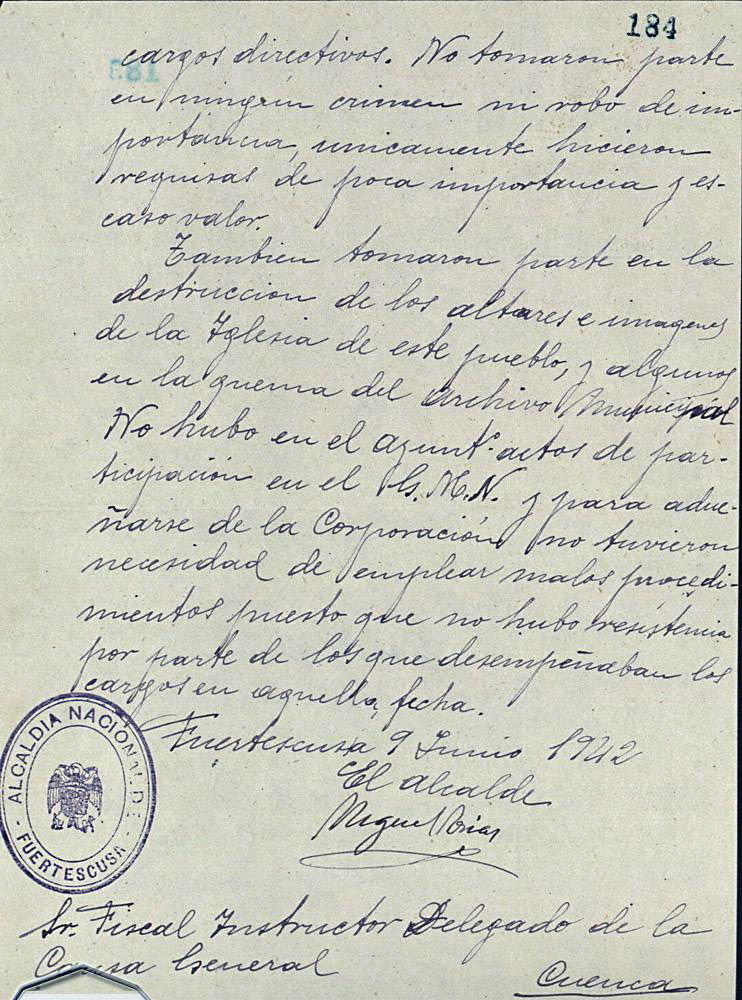 184
cargos directivos. No tomaron parte
en ningún crimen ni robo de im-
portancia, unicamente hicieron
requisas de poca importancia y es-
caso valor.
Tambien tomaron parte en la
destruccion de los altares e imagenes
de la Iglesia de este pueblo, y algunos
en la quema del archivo Municipal
No hubo en el ayuntº actos de par-
ticipación en el G. M. N. y para adue-
ñarse de la Corporación no tuvieron
necesidad de emplear malos procedi-
mientos puesto que no hubo resistencia
por parte de los que desempeñaban los
cargos en aquella fecha.
Fuertescusa 9 Junio 1942
El alcalde
Miguel
ALCALDIA NACIONAL DE
FUERTESCUSA
Sr. Fiscal Instructor Delegado de la
Causa General
Cuenca